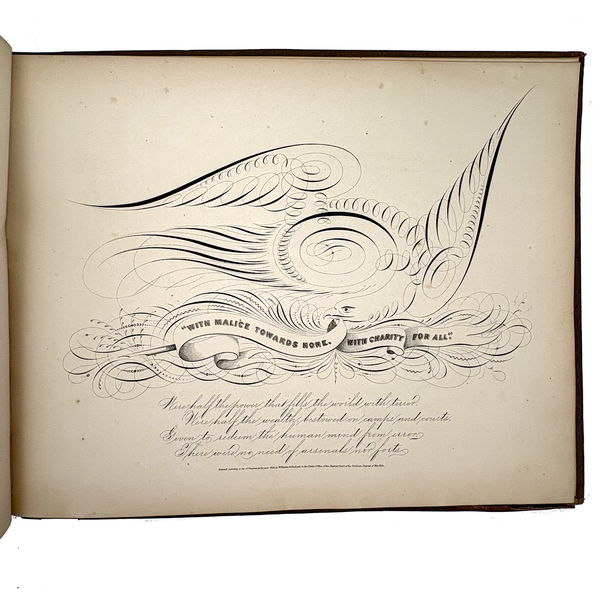 "WITH MALICE TOWARDS NONE. WITH CHARITY FOR ALL."
Were half the power that fills the world with terror,
Were half the wealth, bestowed on camps and courts,
Given to redeem the human mind from error
There were no need of arsenals nor forts.